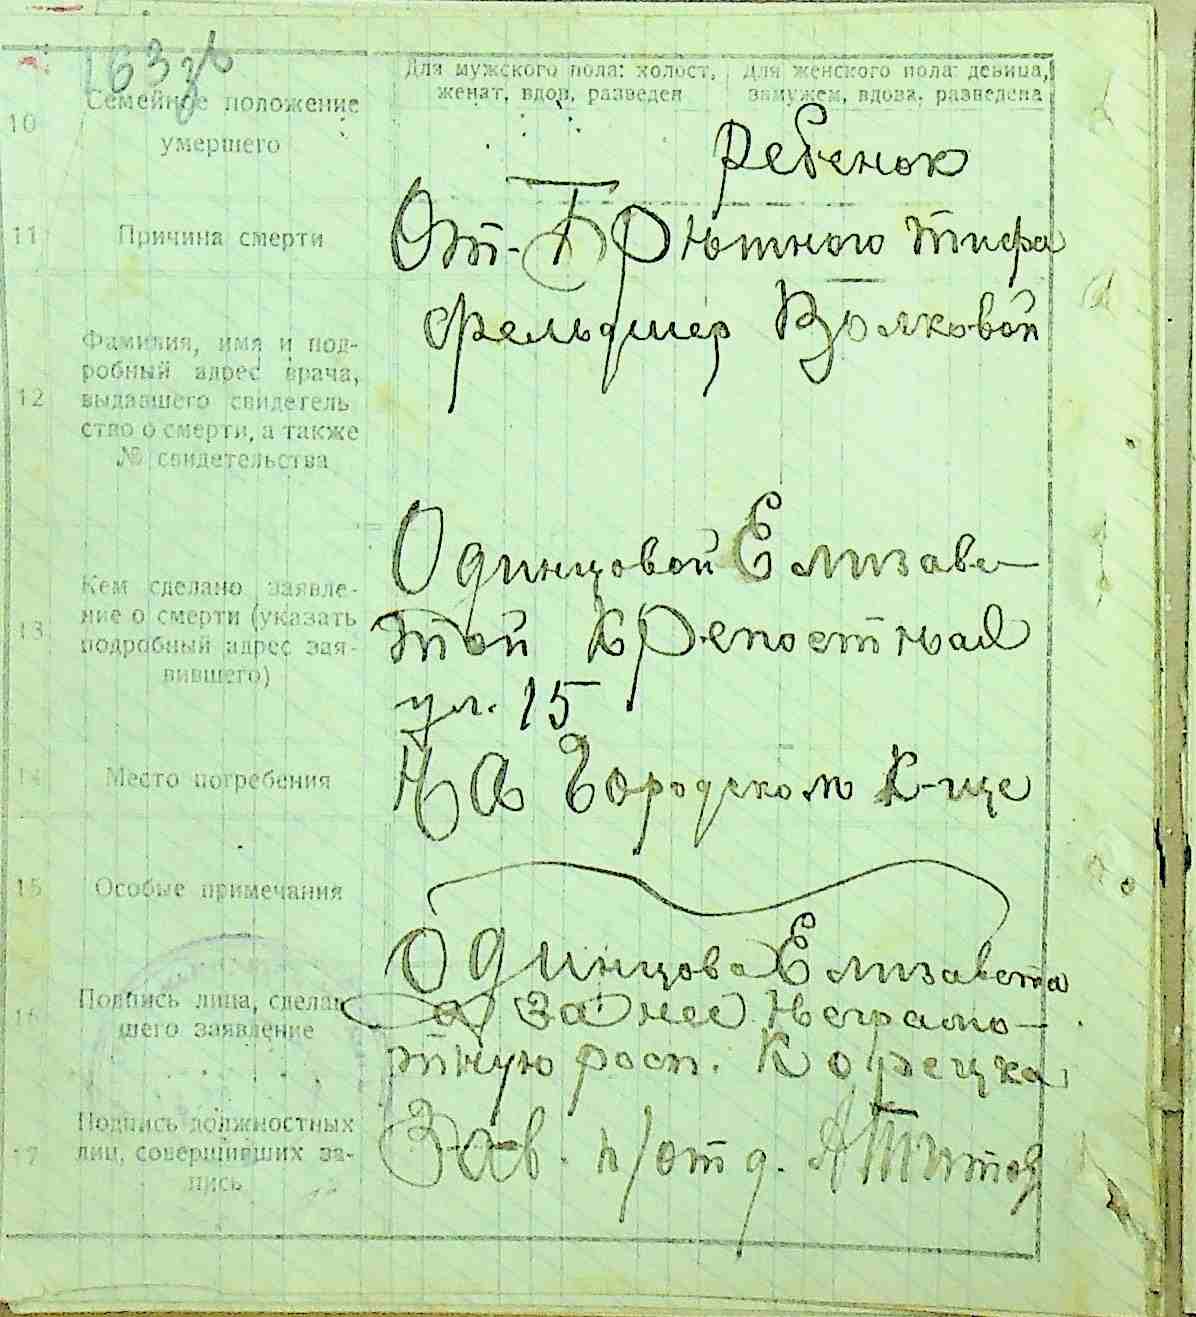 163 зв
Для мужского пола: холост, женат, вдов, разведен
Для женского пола: девица, замужем, вдова, разведена
10 Семейное положение умершего
ребенок
11 Причина смерти
От Брюшного тифа
фельдшер Волковой
12 Фамилия, имя и под-
робный адрес врача,
выдавшего свидетель
ство о смерти, а также
№ свидетельства
Одинцовой Елизаве-
той Крепостная
ул. 15
13 Кем сделано заявле-
ние о смерти (указать
подробный адрес зая-
вившего)
14 Место погребения
На Городском К-ще
15 Особые примечания
16 Подпись лица, сделав
шего заявление
Одинцова Елизавета
а за нее неграмо-
тную росп. Корецка
17 Подпись должностных
лиц, совершивших за-
пись
Зав. п/отд. АТитов